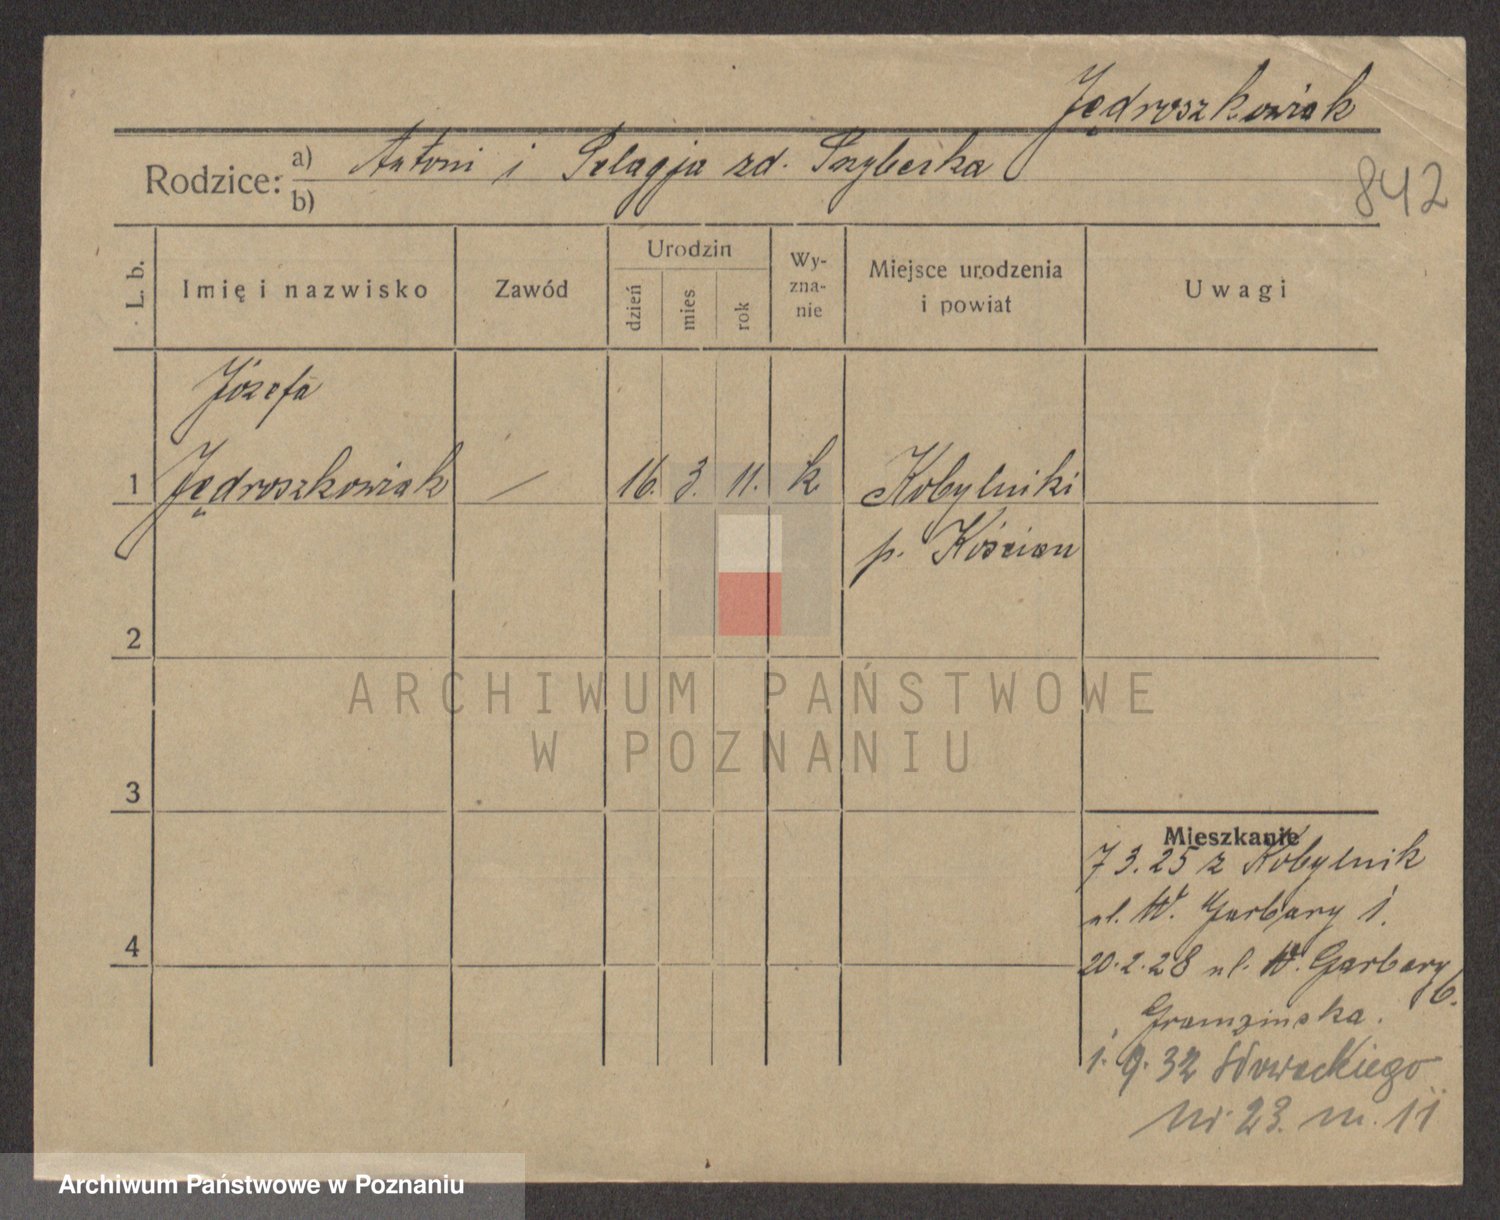 Jędroszkowiak
Rodzice: a) Antoni i Pelagja zd. Szyberka
b)
842
L. b.
Imię i nazwisko
Zawód
Urodzin
dzień
mies
rok
Wy-
zna-
nie
Miejsce urodzenia
i powiat
Uwagi
Józefa
1 Jędroszkowiak — 16. 3. 11. k Kobylniki
p. Kościan
2
3
4
Mieszkanie
7 3. 25 z Kobylnik
ul. W. Garbary 1.
20. 2. 28 ul. W. Garbary 6.
1. 9. 32 Słowackiego
nr 23. m. 11
ARCHIWUM PAŃSTWOWE
W POZNANIU
Archiwum Państwowe w Poznaniu